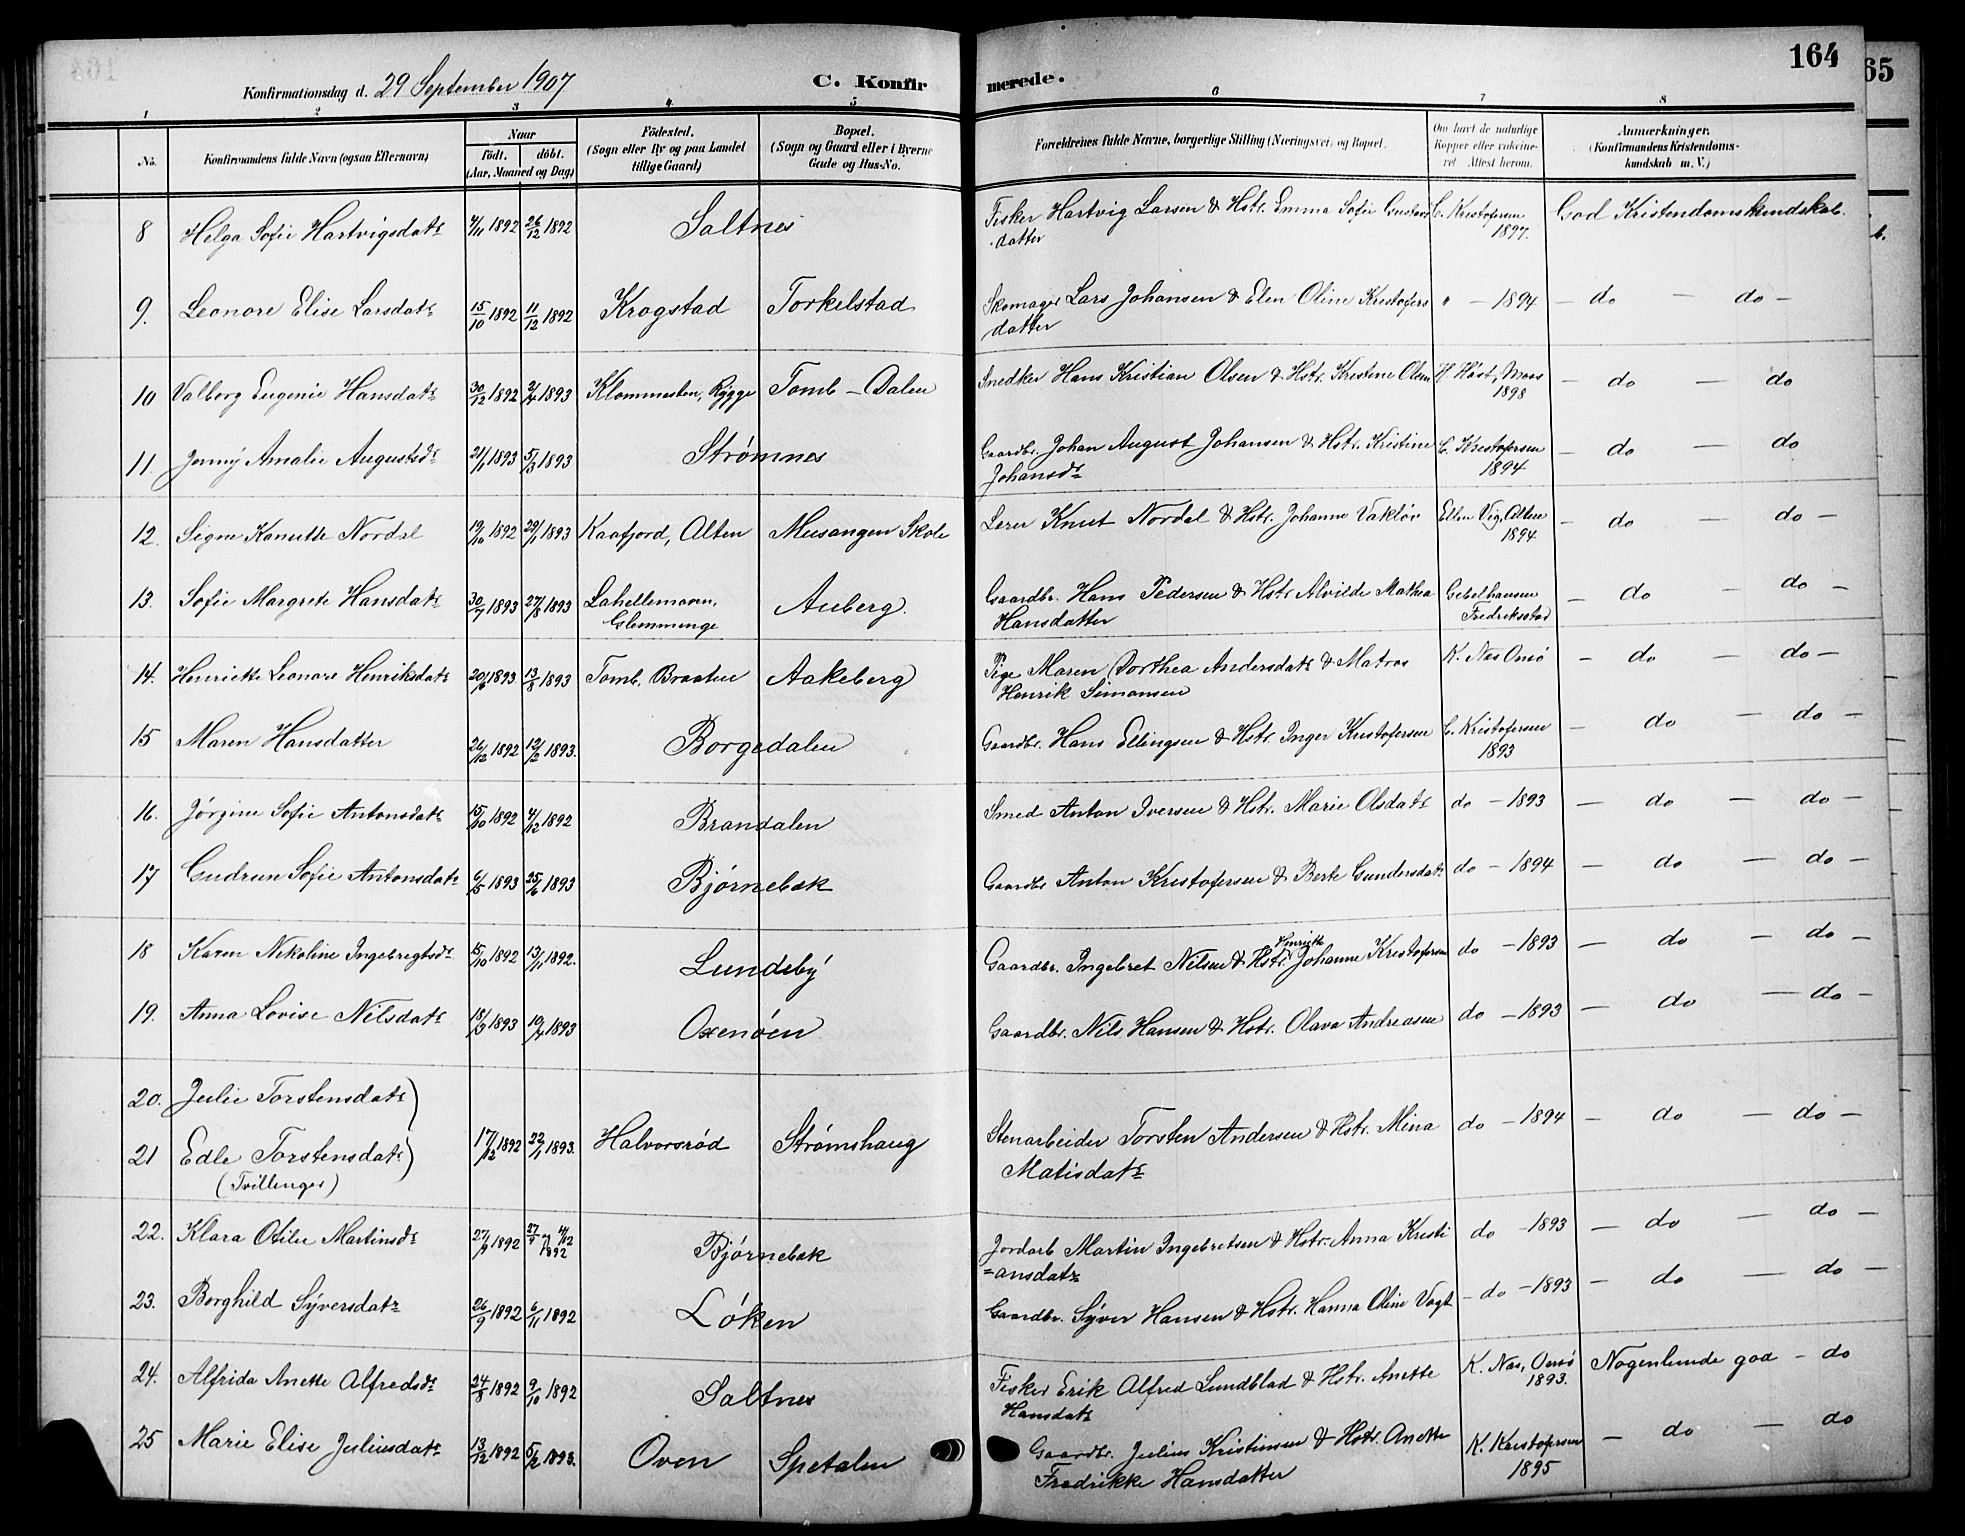 164
65
Konfirmationsdag d. 29 September 1907
C. Konfir
merede.
1 2 3 4 5 6 7 8
No. Konfirmandens fulde Navn (ogsaa Efternavn)
Naar
født. døbt.
(Aar, Maaned og Dag)
Fødested.
(Sogn eller By og paa Landet
tillige Gaard)
Bopæl.
(Sogn og Gaard eller i Byerne
Gade og Hus-No.
Forældrenes fulde Navne, borgerlige Stilling (Næringsvei) og Bopæl.
Om havt de naturlige
Kopper eller vaccine-
ret Attest herom.
Anmærkninger.
(Konfirmandens Kristendoms-
kundskab m. V.)
8 Helga Sofie Hartvigsdatr 4/11 1892 26/12 1892 Saltnes Fisker Hartvig Larsen & Hstr. Emma Sofie Gustavs C. Kristofersen God Kristendomskundskab.
datter 1897.
9. Leonore Elise Larsdatr 15/10 1892 11/12 1892 Krogstad Torkelstad Skomager Lars Johansen & Elen Oline Kristofers " — 1894 — do — do —
datter
10 Valborg Eugenie Hansdatr 30/12 1892 2/4 1893 Klommesten, Rygge Tomb – Dalen Snedker Hans Kristian Olsen & Hstr. Kristine Olsen H Høst, Moss — do — do
1898
11. Jenny Amalie Augustsdr 21/1 1893 5/3 1893 Strømnes Gaardbr. Johan August Johansen & Hstr. Kristine C. Kristofersen — do — do
Johansdr 1894
12. Signe Kanutte Nordal 19/10 1892 29/1 1893 Kaafjord, Alten Musangen Skole Lærer Knut Nordal & Hstr. Johanne Vakløv Ellen Vig, Alten — do — do —
1894
13. Sofie Margrete Hansdatr 30/7 1893 27/8 1893 Lahellemoen, Auberg. Gaardbr. Hans Pedersen & Hstr Alvilde Mathea Gebelhausen — do — do —
Glemminge Hansdatter Fredriksstad
14. Henriette Leonore Henriksdatr 20/6 1893 13/8 1893 Tomb. Braaten Aakeberg Pige Maren Dorthea Andersdatr & Matros K. Næs Onsø — do — do —
Henrik Simonsen
15 Maren Hansdatter 26/12 1892 12/2 1893. Borgedalen Gaardbr. Hans Ellingsen & Hstr. Inger Kristofersen C. Kristofersen — do — do —
1893
16. Jørgine Sofie Antonsdatr 15/10 1892 4/12 1892 Brandalen Smed Anton Iversen & Hstr. Marie Olsdatr do – 1893 — do — do —
17 Gudrun Sofie Antonsdatr 6/5 1893 25/6 1893 Bjørnebæk Gaardbr Anton Kristofersen & Berte Gundersdatr do – 1894 — do — do —
18 Karen Nikoline Ingebregtsdr 15/10 1892 13/11 1892. Lundeby Gaardbr. Ingebret Nilsen & Hstr. Henriette Johanne Kristofersen do – 1893 — do — do —
19. Anna Lovise Nilsdatr 18/3 1893 10/4 1893 Oxenøen Gaardbr. Nils Hansen & Hstr. Olava Andreasen do – 1893 — do — do —
20. Julie Torstensdatr)
21 Edle Torstensdatr) 17/12 1892 22/1 1893. Halvorsrød Strømshaug Stenarbeider Torsten Andersen & Hstr. Mina do – 1894 — do — do —
(Tvillinger) Matisdatr
22. Klara Otilie Martinsdr 27/9 1892 27/9 og 4/12 1892 Bjørnebæk Jordarb Martin Ingebretsen & Hstr. Anna Kristi do – 1893 — do — do —
=ansdatr
23. Borghild Syversdatr 26/9 1892 6/11 1892 Løken Gaardbr. Syver Hansen & Hstr. Hanna Oline Vogt – do – 1893 — do — do —
24. Alfrida Anette Alfredsdr 24/8 1892 9/10 1892 Saltnes Fisker Erik Alfred Lundblad & Hstr. Anette K. Næs, Onsø Nogenlunde god – do
Hansdatr 1893.
25 Marie Elise Juliusdatr 13/12 1892 5/2 1893. Oven Spetalen Gaardbr. Julius Kristinsen & Hstr. Anette K. Kristofersen — do — do
Fredrikke Hansdatter 1895